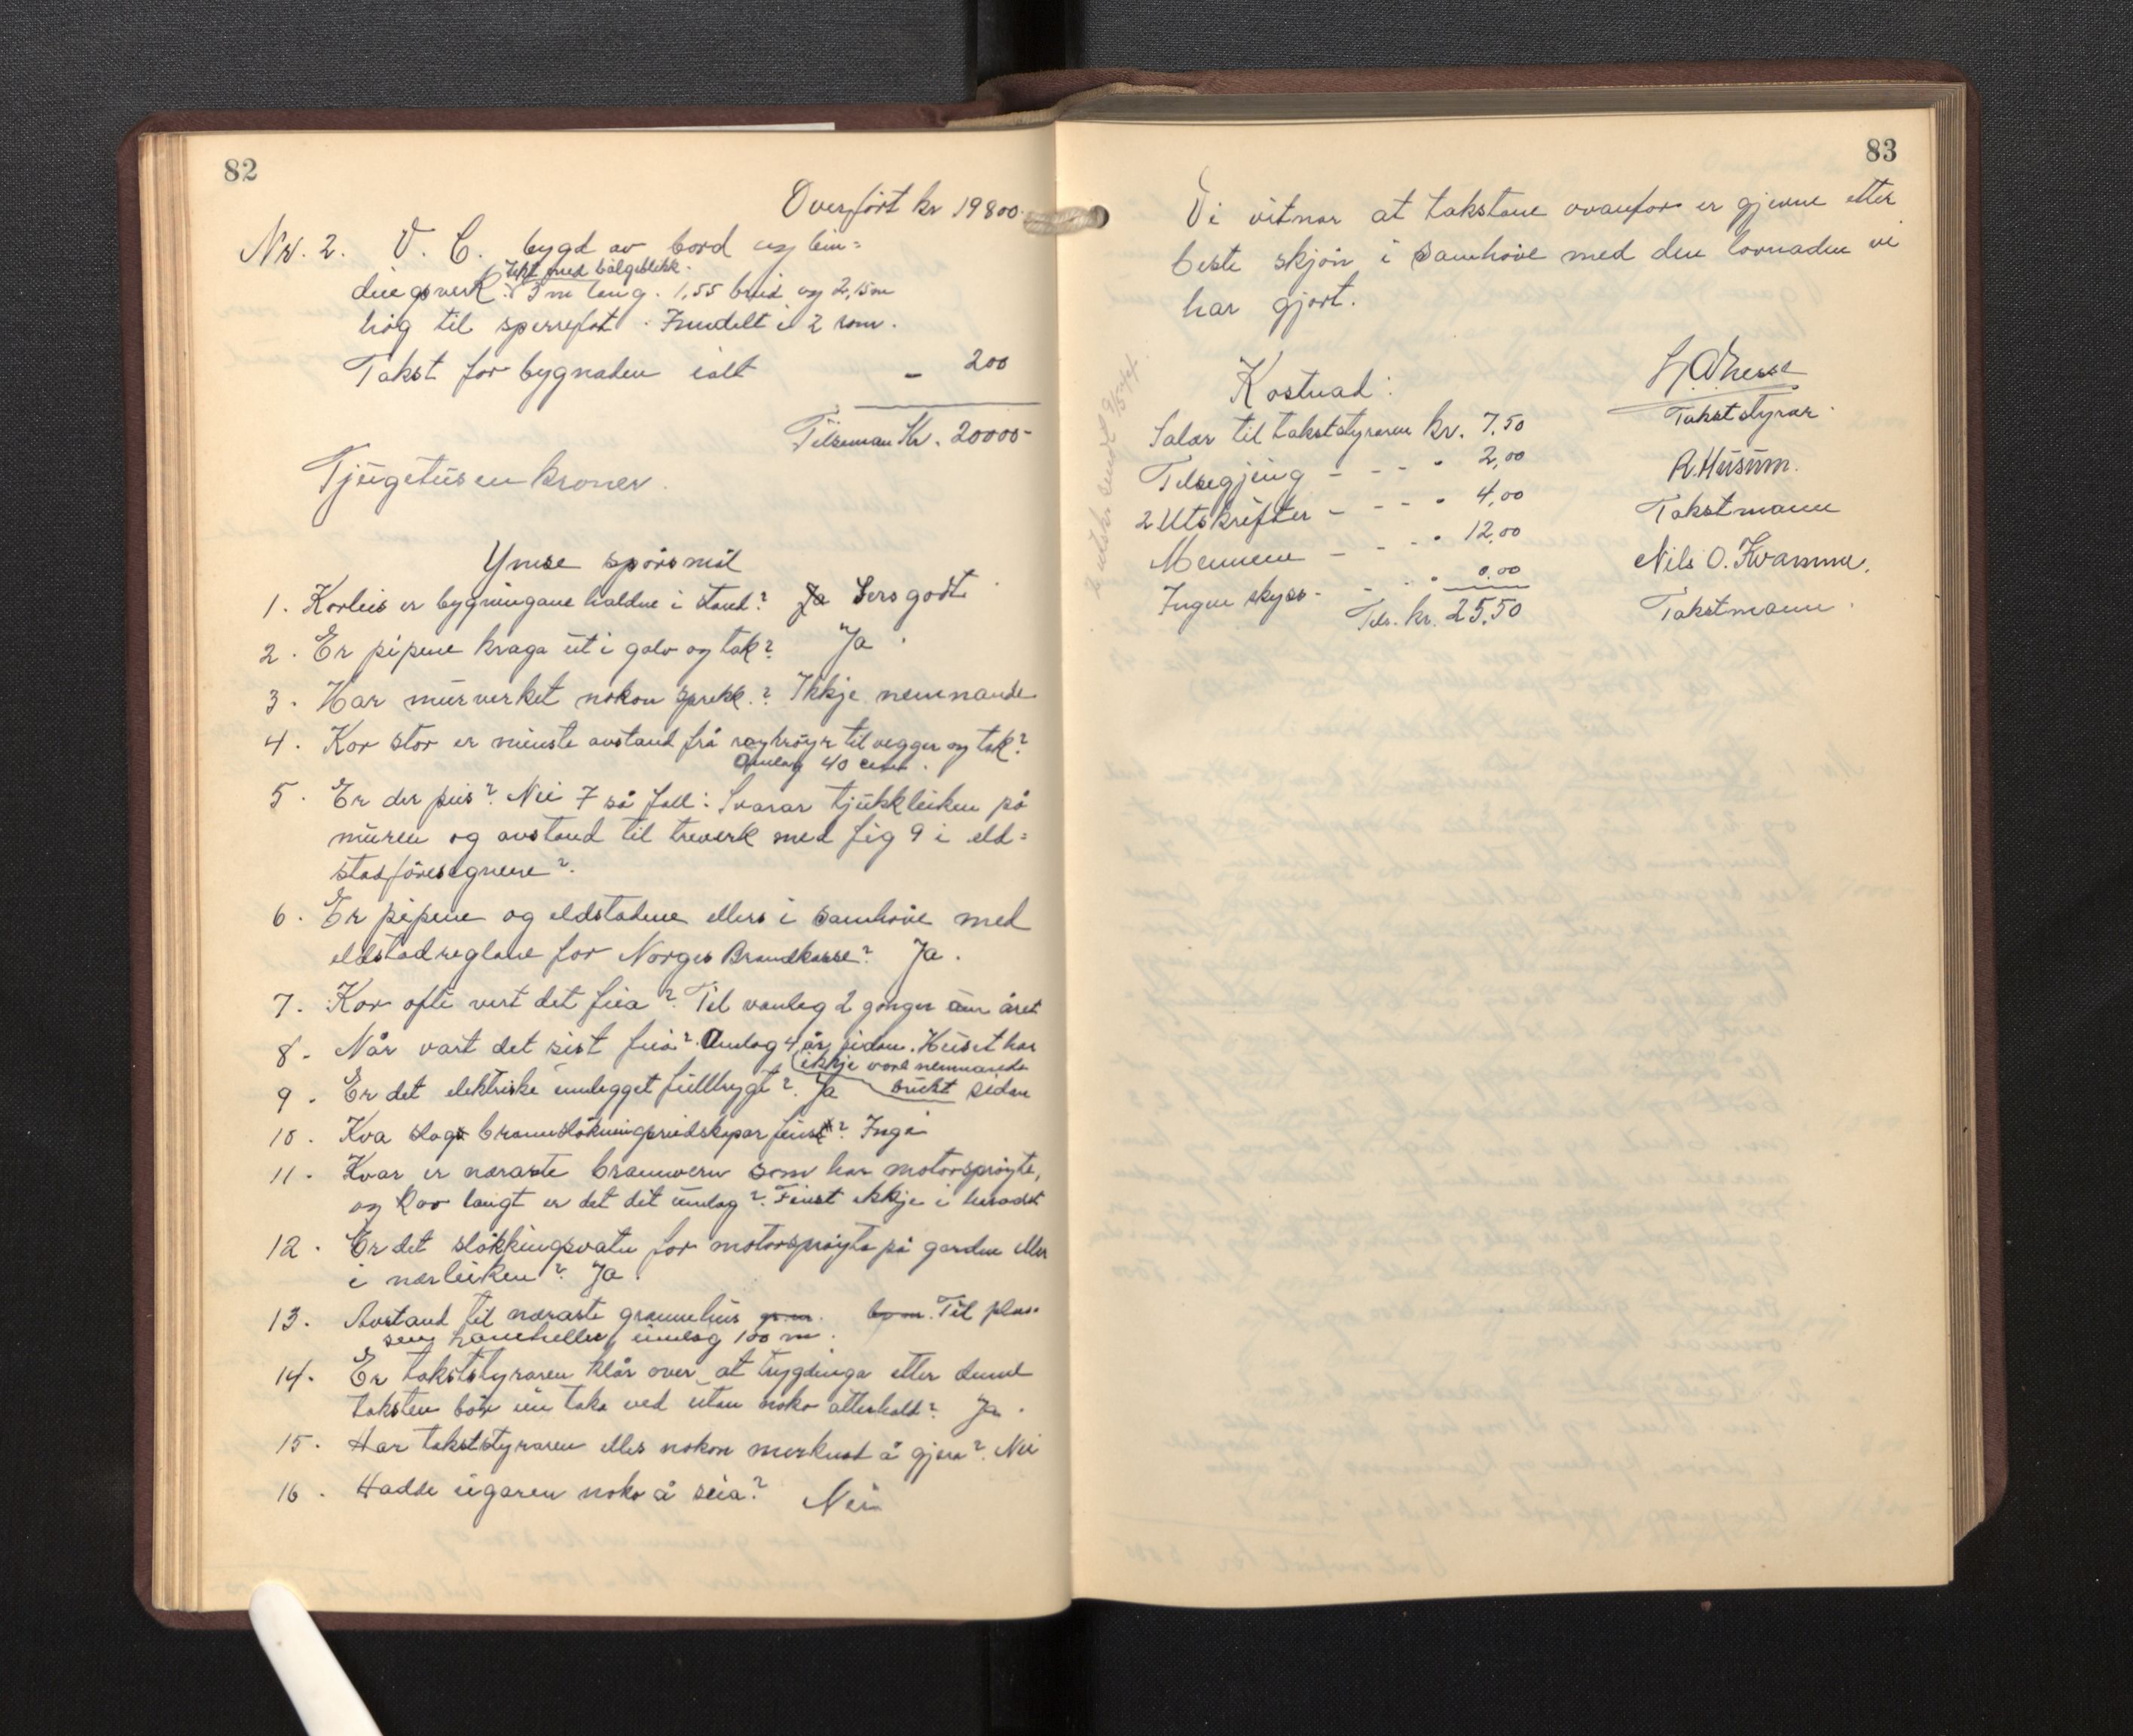 82
Overfört kr 19800.
Nr. 2. V. C. bygd av bord og bin=
tekt med bölgeblikk.
dingsverk. 3 m lang. 1,55 breid og 2,15m
hög til sperrefot. Inndelt i 2 rom.
Takst for bygnaden ialt - 200
Tilsaman Kr. 20000-
Tjugetusen kroner.
Ymse spörsmål
1. Korleis er bygningane haldne i stand? Ja Sers godt.
2. Er pipene kraga ut i golv og tak? Ja.
3. Har murverket nokon sprekk? Ikkje nemnande
4. Kor stor er minste avstand frå röykröyr til vegger og tak?
Omlag 40 cent.
5. Er der peis? Nei I så fall: Svarar tjukkleiken på
muren og avstand til treverk med fig 9 i eld=
stadföresegnene?
6. Er pipene og eldstadene ellers i samhöve med
eldstadreglane for Norges Brandkasse? Ja.
7. Kor ofte vert det feia? Til vanleg 2 gonger um året
8. Når vart det sist feia? Omlag 4 år sidan. Huset har
ikkje vore nemnande
brukt sidan
9. Er det elektriske innlegget fullbygt? Ja
10. Kva slags brannslökningsreidskapar finst? Inga
11. Kvar er næraste brannvern som har motorspröyte,
og kor langt er det dit umlag? Finst ikkje i heradet
12. Er det slökkingsvatn for motorspröyta på garden eller
i nærleiken? Ja.
13. Avstand til næraste grannehus Til plas=
umlag 100 m.
14. Er takststyraren klår over at trygdinga etter denne
taksten bör um taka ved utan noko atterhald? Ja.
15. Har takststyraren elles nokon merknad å gjera? Nei
16. Hadde eigaren noko å seia? Nei
83
Vi vitnar at takstane ovanfor er gjevne etter
beste skjön i samhöve med den lovnaden vi
har gjort.
Kostnad:
Salær til takststyraren kr. 7,50
Tilsegjing - - - " 2,00
2 Utskrifter - - - " 4,00
Mennene - - - " 12,00
Ingen skyss - - - " 0,00
Tils. kr. 25,50
Takststyrar.
R. Husum.
Takstmann
Nils O. Kvamme.
Takstmann.